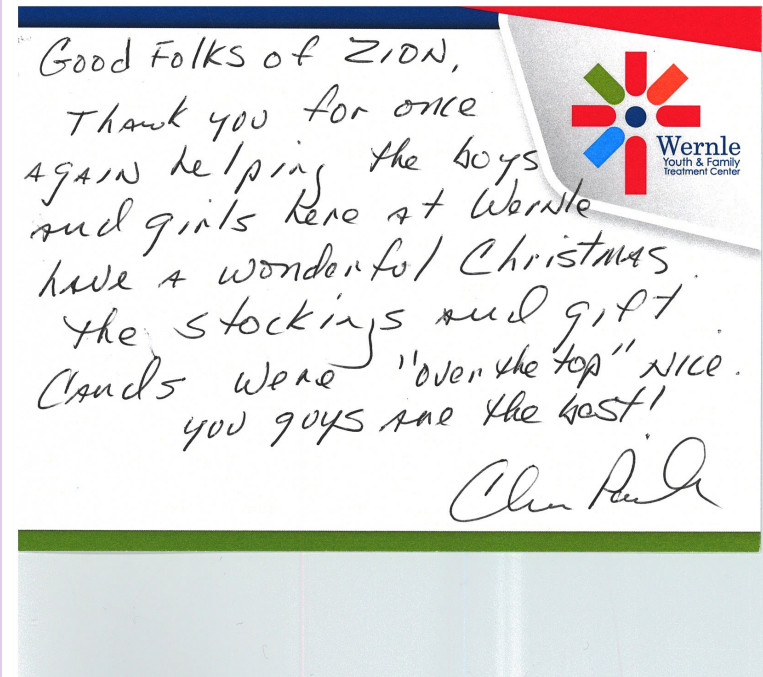 Good Folks of ZION,
Thank you for once
AGAIN helping the boys
and girls here at Wernle
have a wonderful Christmas.
The stockings and gift
Cards were "over the top" NICE.
you guys are the best!
Wernle
Youth & Family
Treatment Center